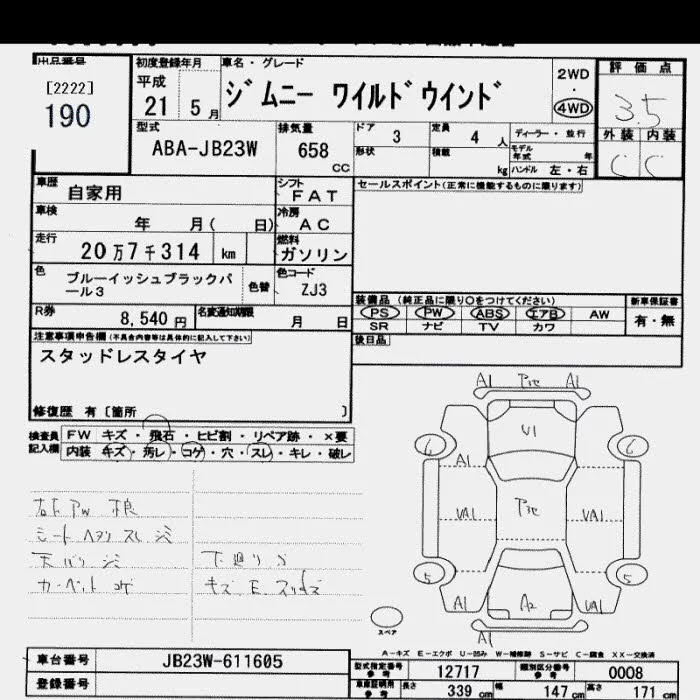 出品番号 初度登録年月 車名・グレード 評価点
[2222] 平成 ジムニー ワイルドウインド 2WD・4WD 3.5
190 21 5月 外装 内装
型式 排気量 ドア 3 定員 4 人 ディーラー・並行 C C
ABA-JB23W 658 CC 形状 積載 kg モデル年式 年
ハンドル 左・右
車歴 自家用 シフト FAT セールスポイント(正常に機能するものに限ります)
車検 年 月( 日) 冷房 AC
走行 20万7千314 km 燃料 ガソリン
色 ブルーイッシュブラックパール3 色替 色コード ZJ3
装備品 (純正品に限り○をつけてください) 新車保証書
R券 8,540 円 名変通知期限 月 日 PS PW ABS エアB AW 有・無
SR ナビ TV カワ
注意事項申告欄(不具合内容等は具体的に記入して下さい) 後日品
スタッドレスタイヤ
修復歴 有 [箇所 ]
検査員記入欄 FW キズ・飛石・ヒビ割・リペア跡・×要
内装 キズ・汚レ・コゲ・穴・スレ・キレ・破レ
A1 A1
U1
6 6
A1
UA1 UA1
5 5
A1 A2 UA1
A1
シート ヘタリ スレ
カーペット コゲ
下廻り S
スペア
A-キズ E-エクボ U-凹み W-補修跡 S-サビ C-腐食 XX-交換済
車台番号 JB23W-611605 型式指定番号 参考 12717 類別区分番号 参考 0008
登録番号 車庫証明用 参考 長さ 339 cm 幅 147 cm 高さ 171 cm